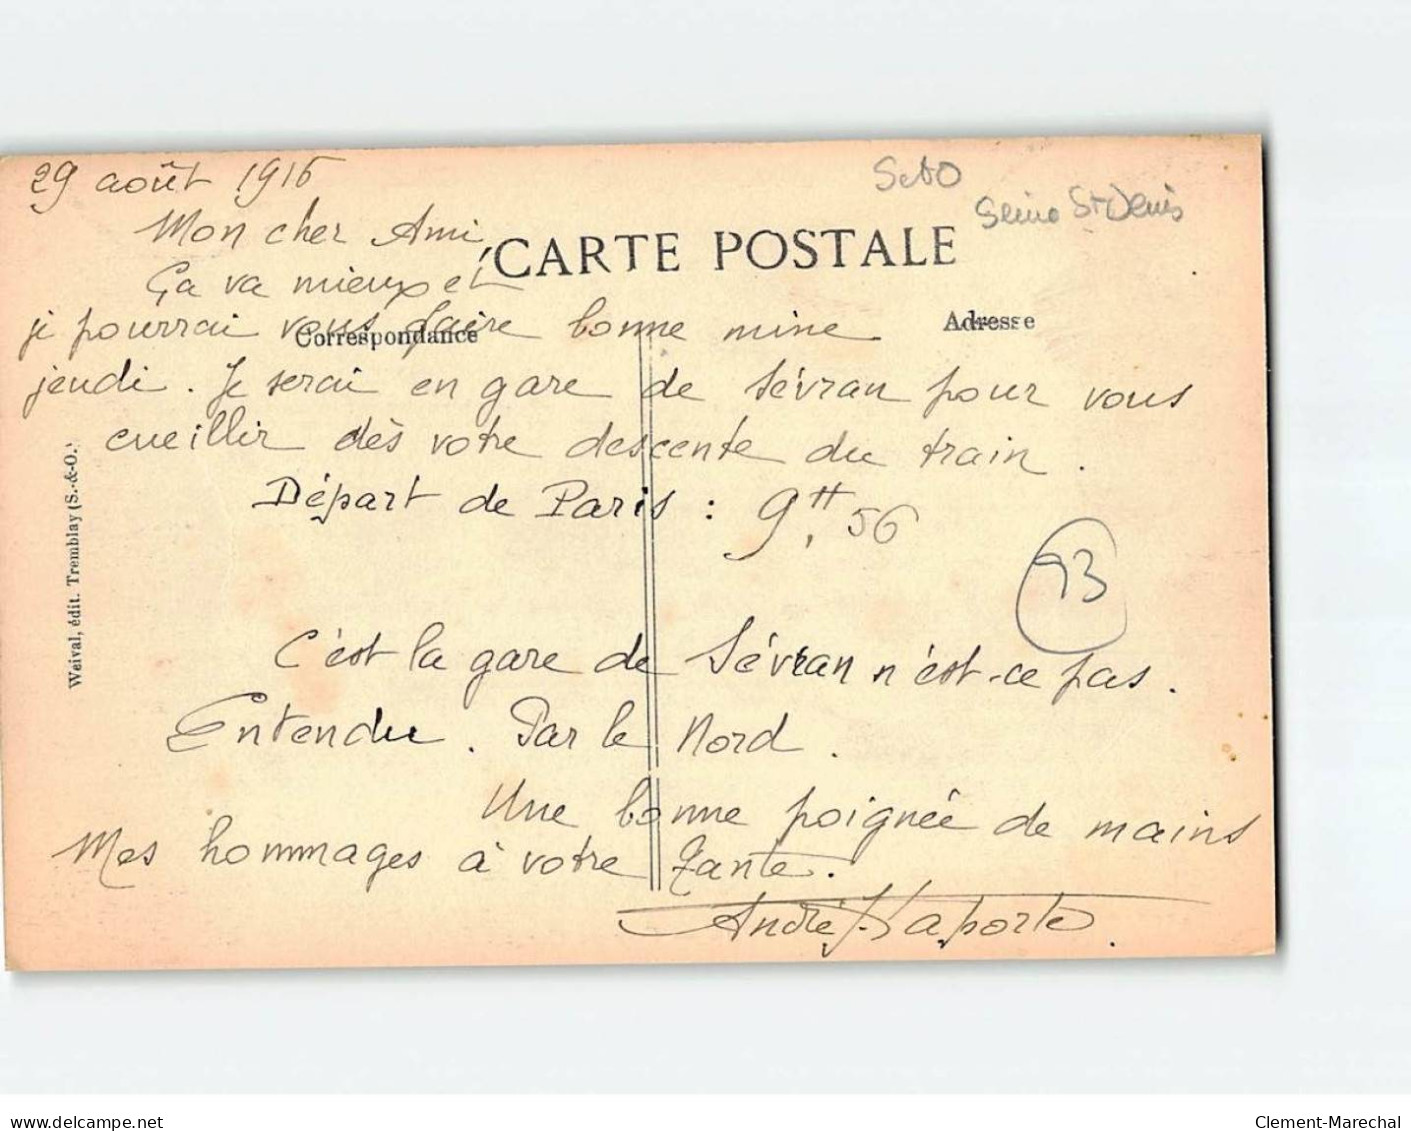 29 août 1916
SetO
Seine St Denis
Mon cher Ami
CARTE POSTALE
Ça va mieux et
je pourrai vous faire bonne mine
Correspondance
Adresse
jeudi. Je serai en gare de Sévran pour vous
cueillir dès votre descente du train.
Départ de Paris : 9H, 56
93
Weival, édit. Tremblay (S.-&-O.)
C'est la gare de Sévran n'est-ce pas.
Entendu. Par le Nord.
Une bonne poignée de mains
Mes hommages à votre Tante.
André Laporte.
www.delcampe.net
Clement-Marechal